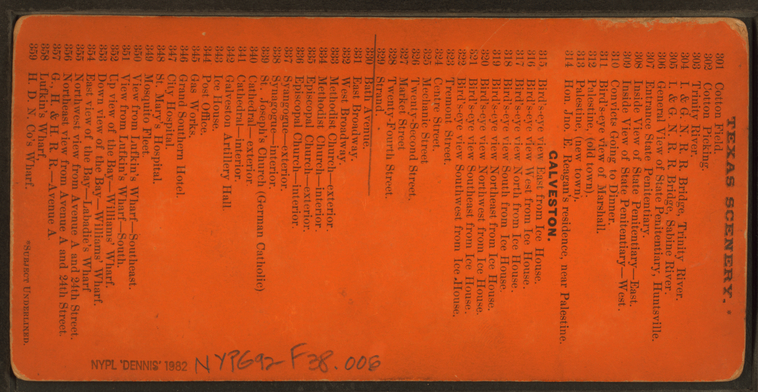 TEXAS SCENERY.*
301 Cotton Field.
302 Cotton Picking.
303 Trinity River.
304 I. & G. N. R. R. Bridge, Trinity River.
305 I. & G. N. R. R. Bridge, Sabine River.
306 General View of State Penitentiary, Huntsville.
307 Entrance State Penitentiary.
308 Inside View of State Penitentiary—East.
309 Inside View of State Penitentiary—West.
310 Convicts Going to Dinner.
311 Bird's-eye View of Marshall.
312 Palestine, (old town).
313 Palestine, (new town).
314 Hon. Jno. E. Reagan's residence, near Palestine.
GALVESTON.
315 Bird's-eye view East from Ice House.
316 Bird's-eye view West from Ice House.
317 Bird's-eye view North from Ice House.
318 Bird's-eye view South from Ice House.
319 Bird's-eye view Northeast from Ice House.
320 Bird's-eye view Northwest from Ice House.
321 Bird's-eye view Southeast from Ice House.
322 Bird's-eye view Southwest from Ice House.
323 Tremont Street.
324 Centre Street.
325 Mechanic Street
326 Twenty-Second Street.
327 Market Street
328 Twenty-Fourth Street.
329 Strand.
330 Bath Avenue.
331 East Broadway.
332 West Broadway.
333 Methodist Church—exterior.
334 Methodist Church—interior.
335 Episcopal Church—exterior.
336 Episcopal Church—interior.
337 Synagogue—exterior.
338 Synagogue—interior.
339 St. Joseph's Church (German Catholic)
340 Cathedral—exterior.
341 Cathedral—interior.
342 Galveston Artillery Hall
343 Ice House.
344 Post Office.
345 Gas Works.
346 Grand Southern Hotel.
347 City Hospital.
348 St. Mary's Hospital.
349 Mosquito Fleet.
350 View from Lufkin's Wharf—Southeast.
351 View from Lufkin's Wharf—South.
352 Up view of the Bay—Williams' Wharf.
353 Down view of the Bay—Williams' Wharf.
354 East view of the Bay—Labadie's Wharf
355 Northwest view from Avenue A and 24th Street.
356 Northeast view from Avenue A and 24th Street.
357 G., H. & H. R. R.—Avenue A.
358 Lufkin's Wharf.
359 H. D. N. Co's Wharf.
*SUBJECT UNDERLINED.
NYPL "DENNIS" 1982
NYPG92-F38.006